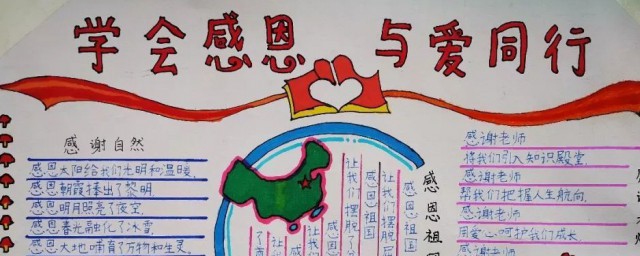 学会感恩 与爱同行
感谢自然
感恩太阳给我们光明和温暖
感恩朝霞播出了黎明
感恩明月照亮了夜空
感恩春光融化了冰雪
感恩大地哺育了万物和生灵
感恩祖国
让我们摆脱了
感恩祖国
让我们摆脱
感恩祖国
感恩祖
感谢老师
将我们引入知识殿堂
感谢老师
帮我们把握人生航向
感谢老师
用爱心呵护我们成长
感谢老师